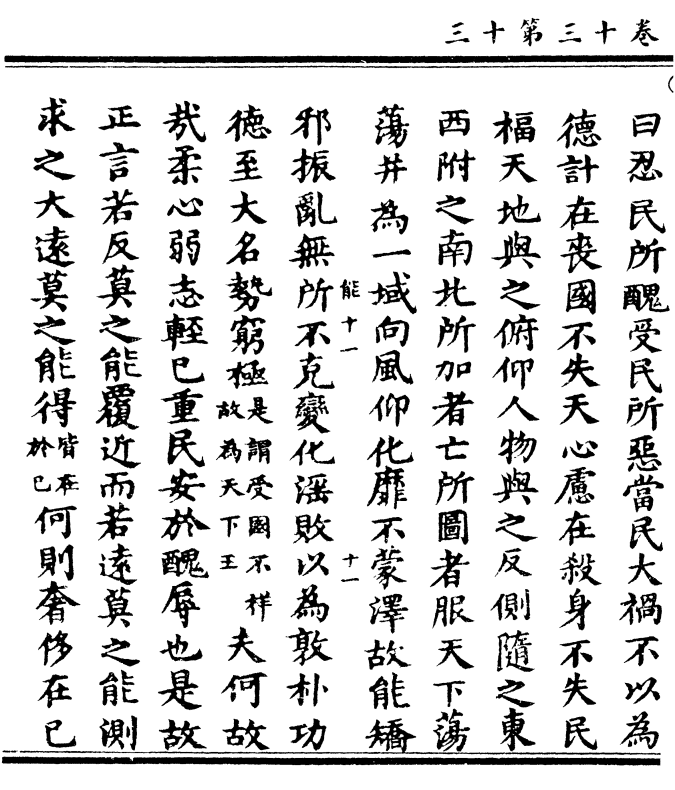 卷十三第十三
曰忍民所醜受民所惡當民大禍不以為
德計在喪國不失天心慮在殺身不失民
福天地與之俯仰人物與之反側隨之東
西附之南北所加者亡所圖者服天下蕩
蕩并為一域向風仰化靡不蒙澤故能矯
能十一
十一
邪振亂無所不克變化滛敗以為敦朴功
德至大名勢窮極是謂受國不祥故為天下王夫何故
哉柔心弱志輕已重民安於醜辱也是故
正言若反莫之能覆近而若遠莫之能測
求之大遠莫之能得皆在於已何則奢侈在已